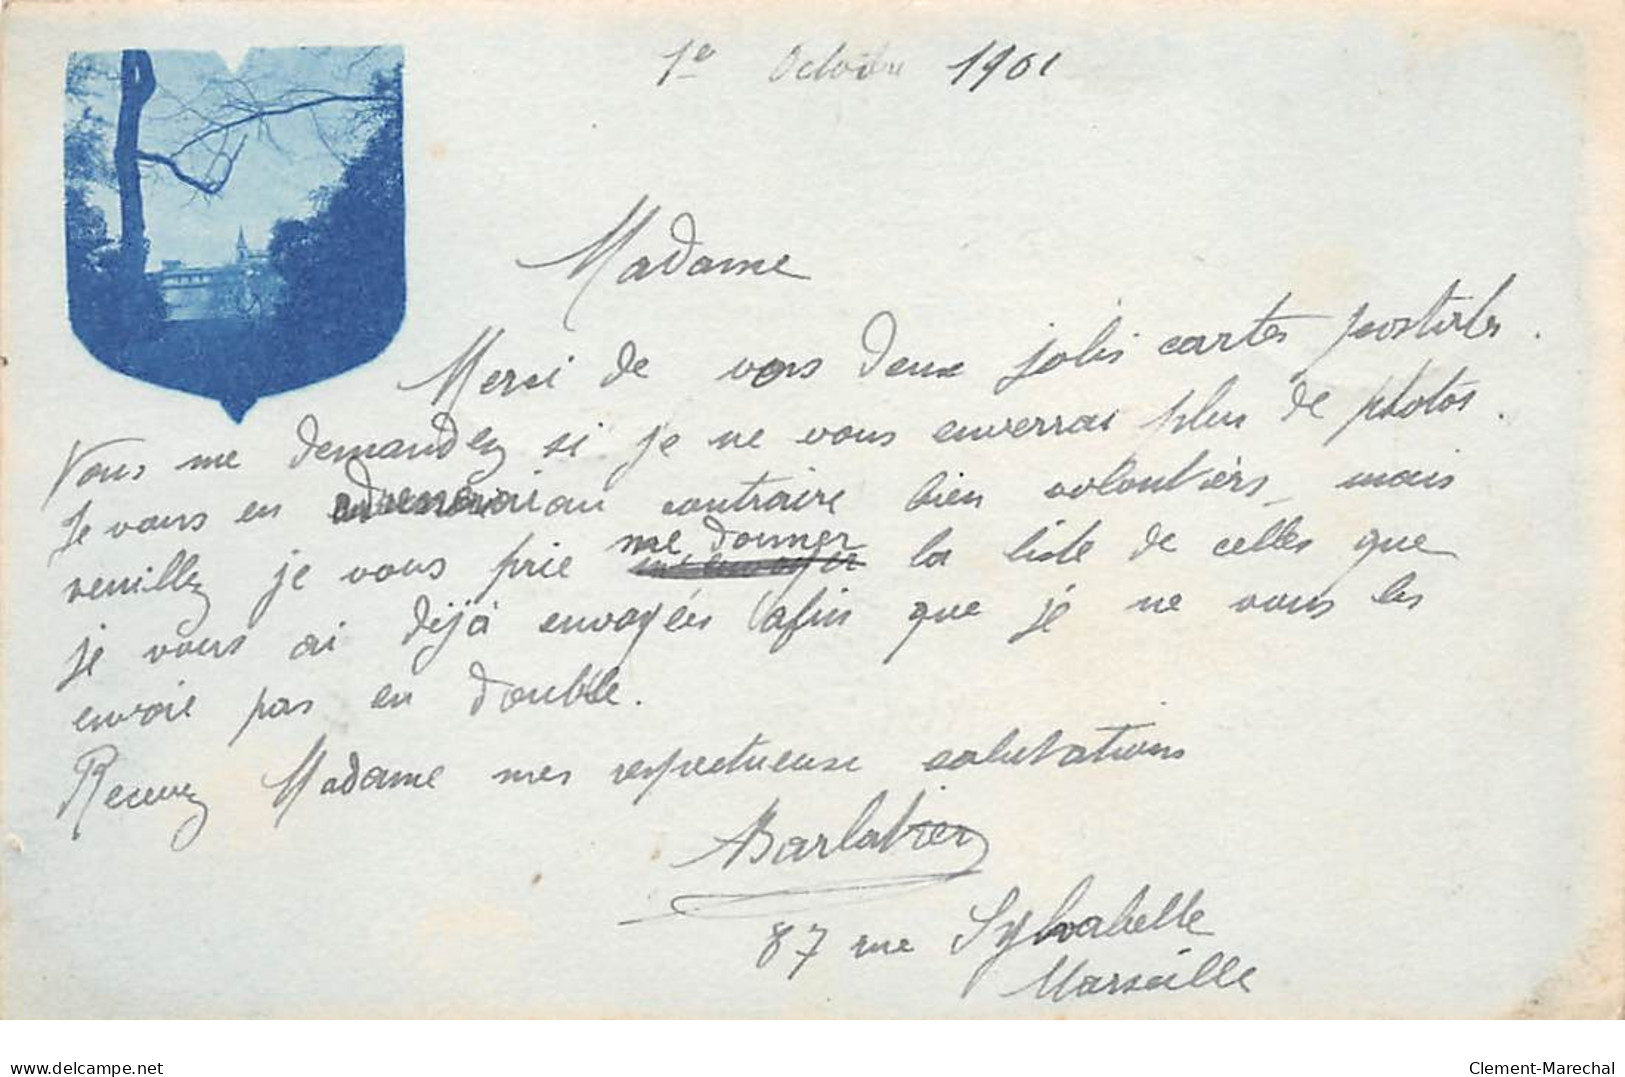 1e Octobre 1901
Madame
Merci de vos deux jolis cartes postales.
Vous me demandez si je ne vous enverrai plus de photos.
Je vous en au contraire bien volontiers, mais
veuillez je vous prie me donner la liste de celles que
je vous ai déjà envoyées afin que je ne vous les
envoie pas en double.
Recevez Madame mes respectueuse salutations
Barlatier
87 rue Sylvabelle
Marseille
delcampe.net
Clement-Marechal